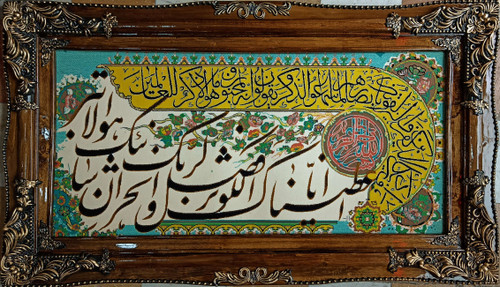 بسم الله الرحمن الرحیم
وان یکاد الذین کفروا لیزلقونک بابصارهم لما سمعوا الذکر ویقولون انه لمجنون وما هو الا ذکر للعالمین
انا اعطیناک الکوثر فصل لربک وانحر ان شانئک هو الابتر